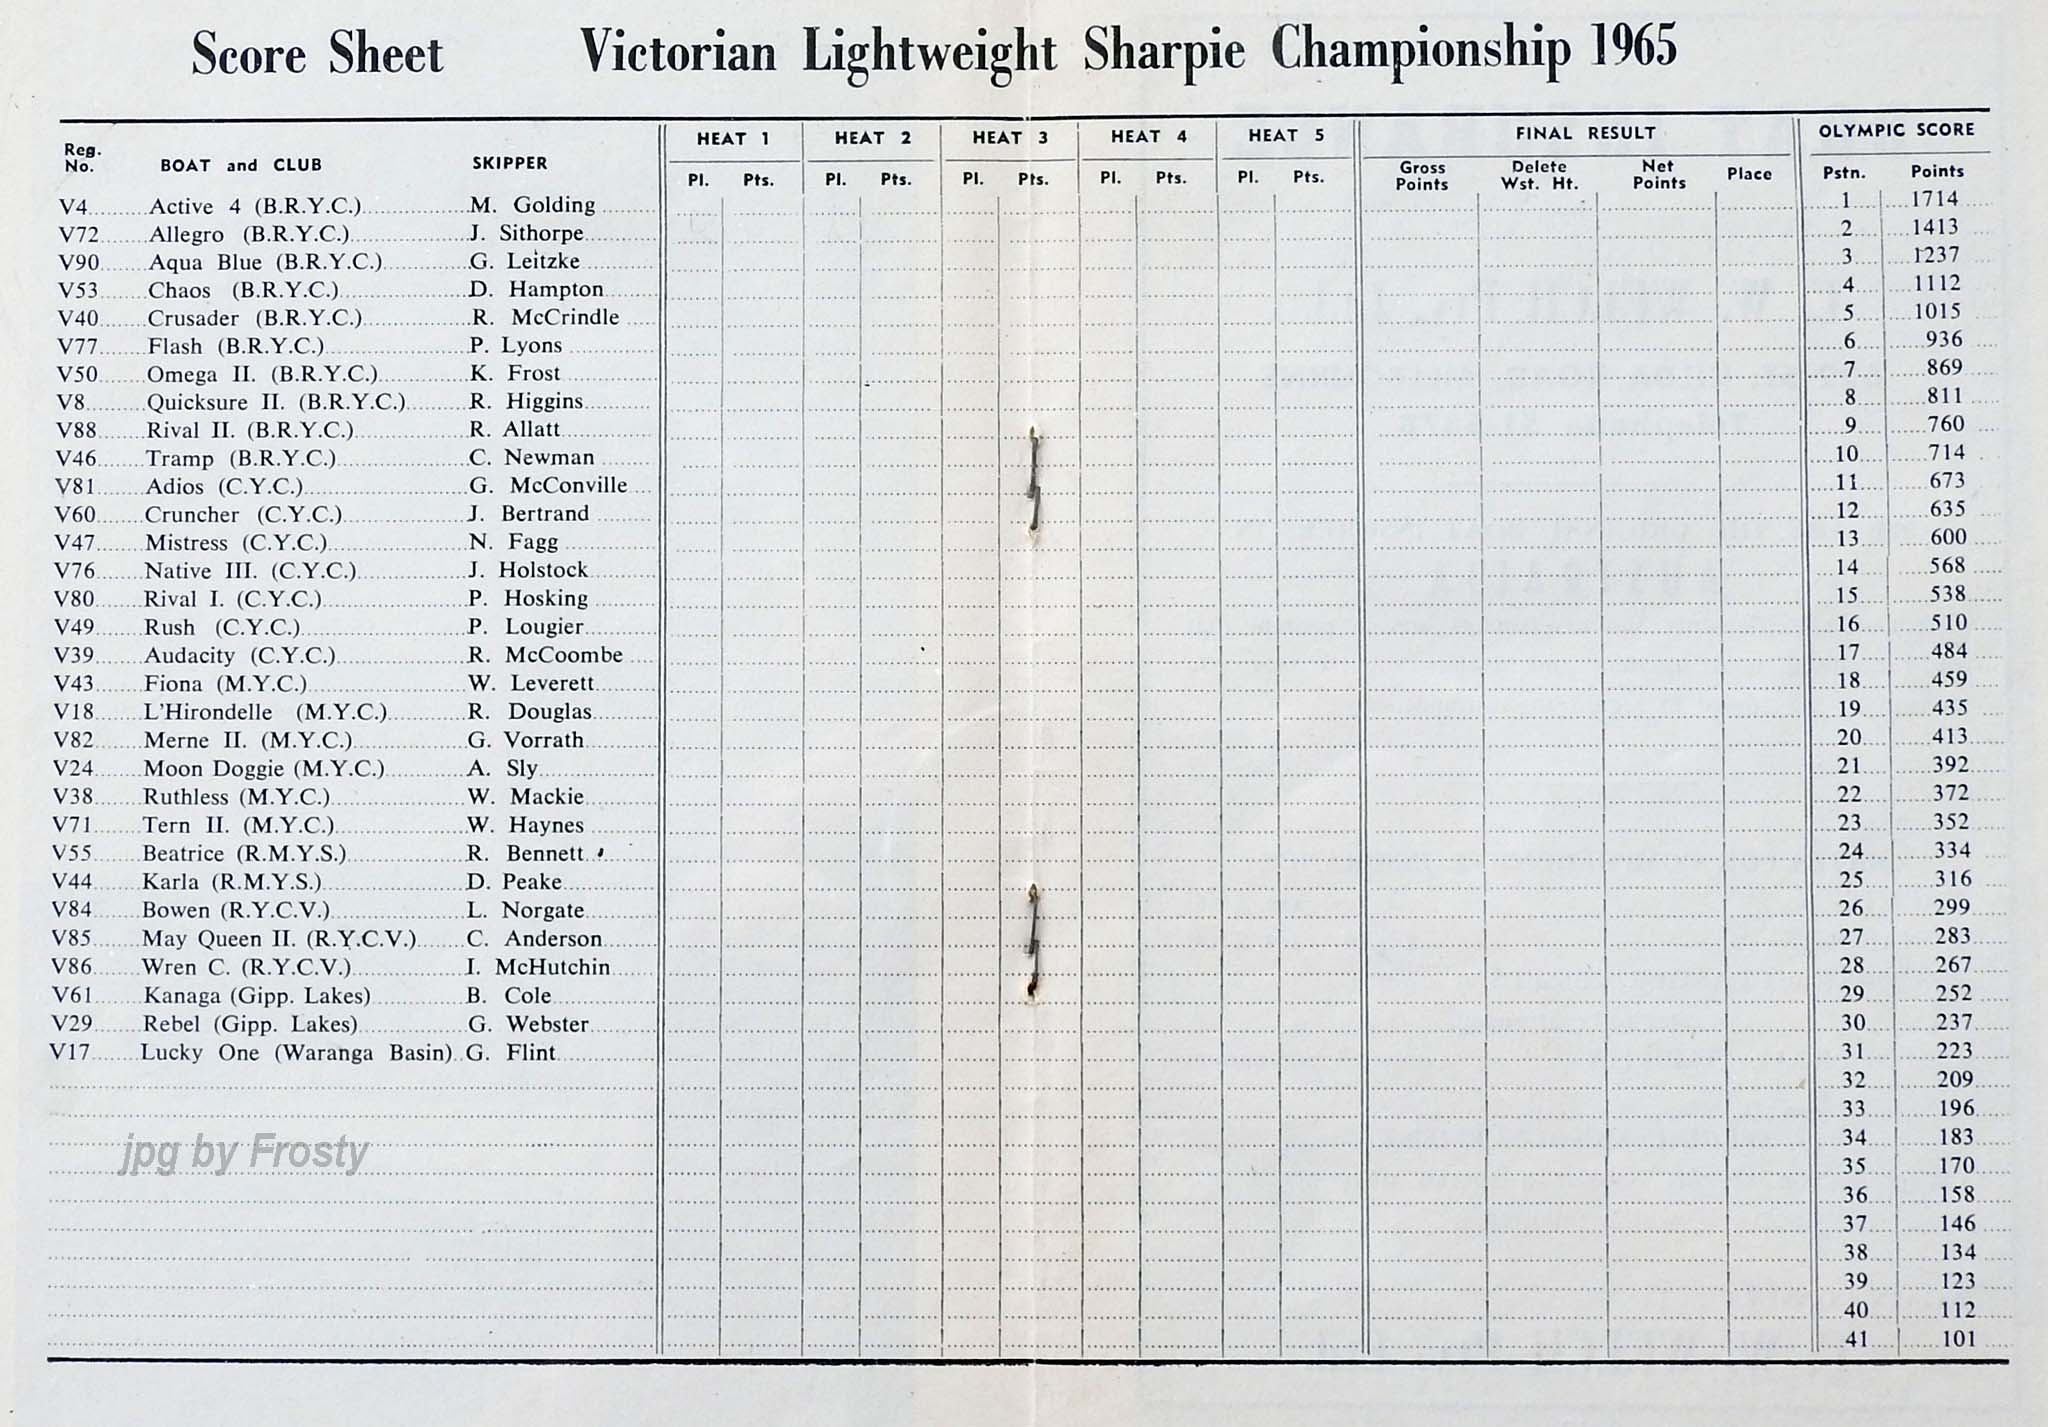 Score Sheet Victorian Lightweight Sharpie Championship 1965
HEAT 1 HEAT 2 HEAT 3 HEAT 4 HEAT 5 FINAL RESULT OLYMPIC SCORE
Reg. No. BOAT and CLUB SKIPPER Pl. Pts. Pl. Pts. Pl. Pts. Pl. Pts. Pl. Pts. Gross Points Delete Wst. Ht. Net Points Place Pstn. Points
V4 Active 4 (B.R.Y.C.) M. Golding 1 1714
V72 Allegro (B.R.Y.C.) J. Sithorpe 2 1413
V90 Aqua Blue (B.R.Y.C.) G. Leitzke 3 1237
V53 Chaos (B.R.Y.C.) D. Hampton 4 1112
V40 Crusader (B.R.Y.C.) R. McCrindle 5 1015
V77 Flash (B.R.Y.C.) P. Lyons 6 936
V50 Omega II. (B.R.Y.C.) K. Frost 7 869
V8 Quicksure II. (B.R.Y.C.) R. Higgins 8 811
V88 Rival II. (B.R.Y.C.) R. Allatt 9 760
V46 Tramp (B.R.Y.C.) C. Newman 10 714
V81 Adios (C.Y.C.) G. McConville 11 673
V60 Cruncher (C.Y.C.) J. Bertrand 12 635
V47 Mistress (C.Y.C.) N. Fagg 13 600
V76 Native III. (C.Y.C.) J. Holstock 14 568
V80 Rival I. (C.Y.C.) P. Hosking 15 538
V49 Rush (C.Y.C.) P. Lougier 16 510
V39 Audacity (C.Y.C.) R. McCoombe 17 484
V43 Fiona (M.Y.C.) W. Leverett 18 459
V18 L'Hirondelle (M.Y.C.) R. Douglas 19 435
V82 Merne II. (M.Y.C.) G. Vorrath 20 413
V24 Moon Doggie (M.Y.C.) A. Sly 21 392
V38 Ruthless (M.Y.C.) W. Mackie 22 372
V71 Tern II. (M.Y.C.) W. Haynes 23 352
V55 Beatrice (R.M.Y.S.) R. Bennett 24 334
V44 Karla (R.M.Y.S.) D. Peake 25 316
V84 Bowen (R.Y.C.V.) L. Norgate 26 299
V85 May Queen II. (R.Y.C.V.) C. Anderson 27 283
V86 Wren C. (R.Y.C.V.) I. McHutchin 28 267
V61 Kanaga (Gipp. Lakes) B. Cole 29 252
V29 Rebel (Gipp. Lakes) G. Webster 30 237
V17 Lucky One (Waranga Basin) G. Flint 31 223
32 209
33 196
jpg by Frosty 34 183
35 170
36 158
37 146
38 134
39 123
40 112
41 101